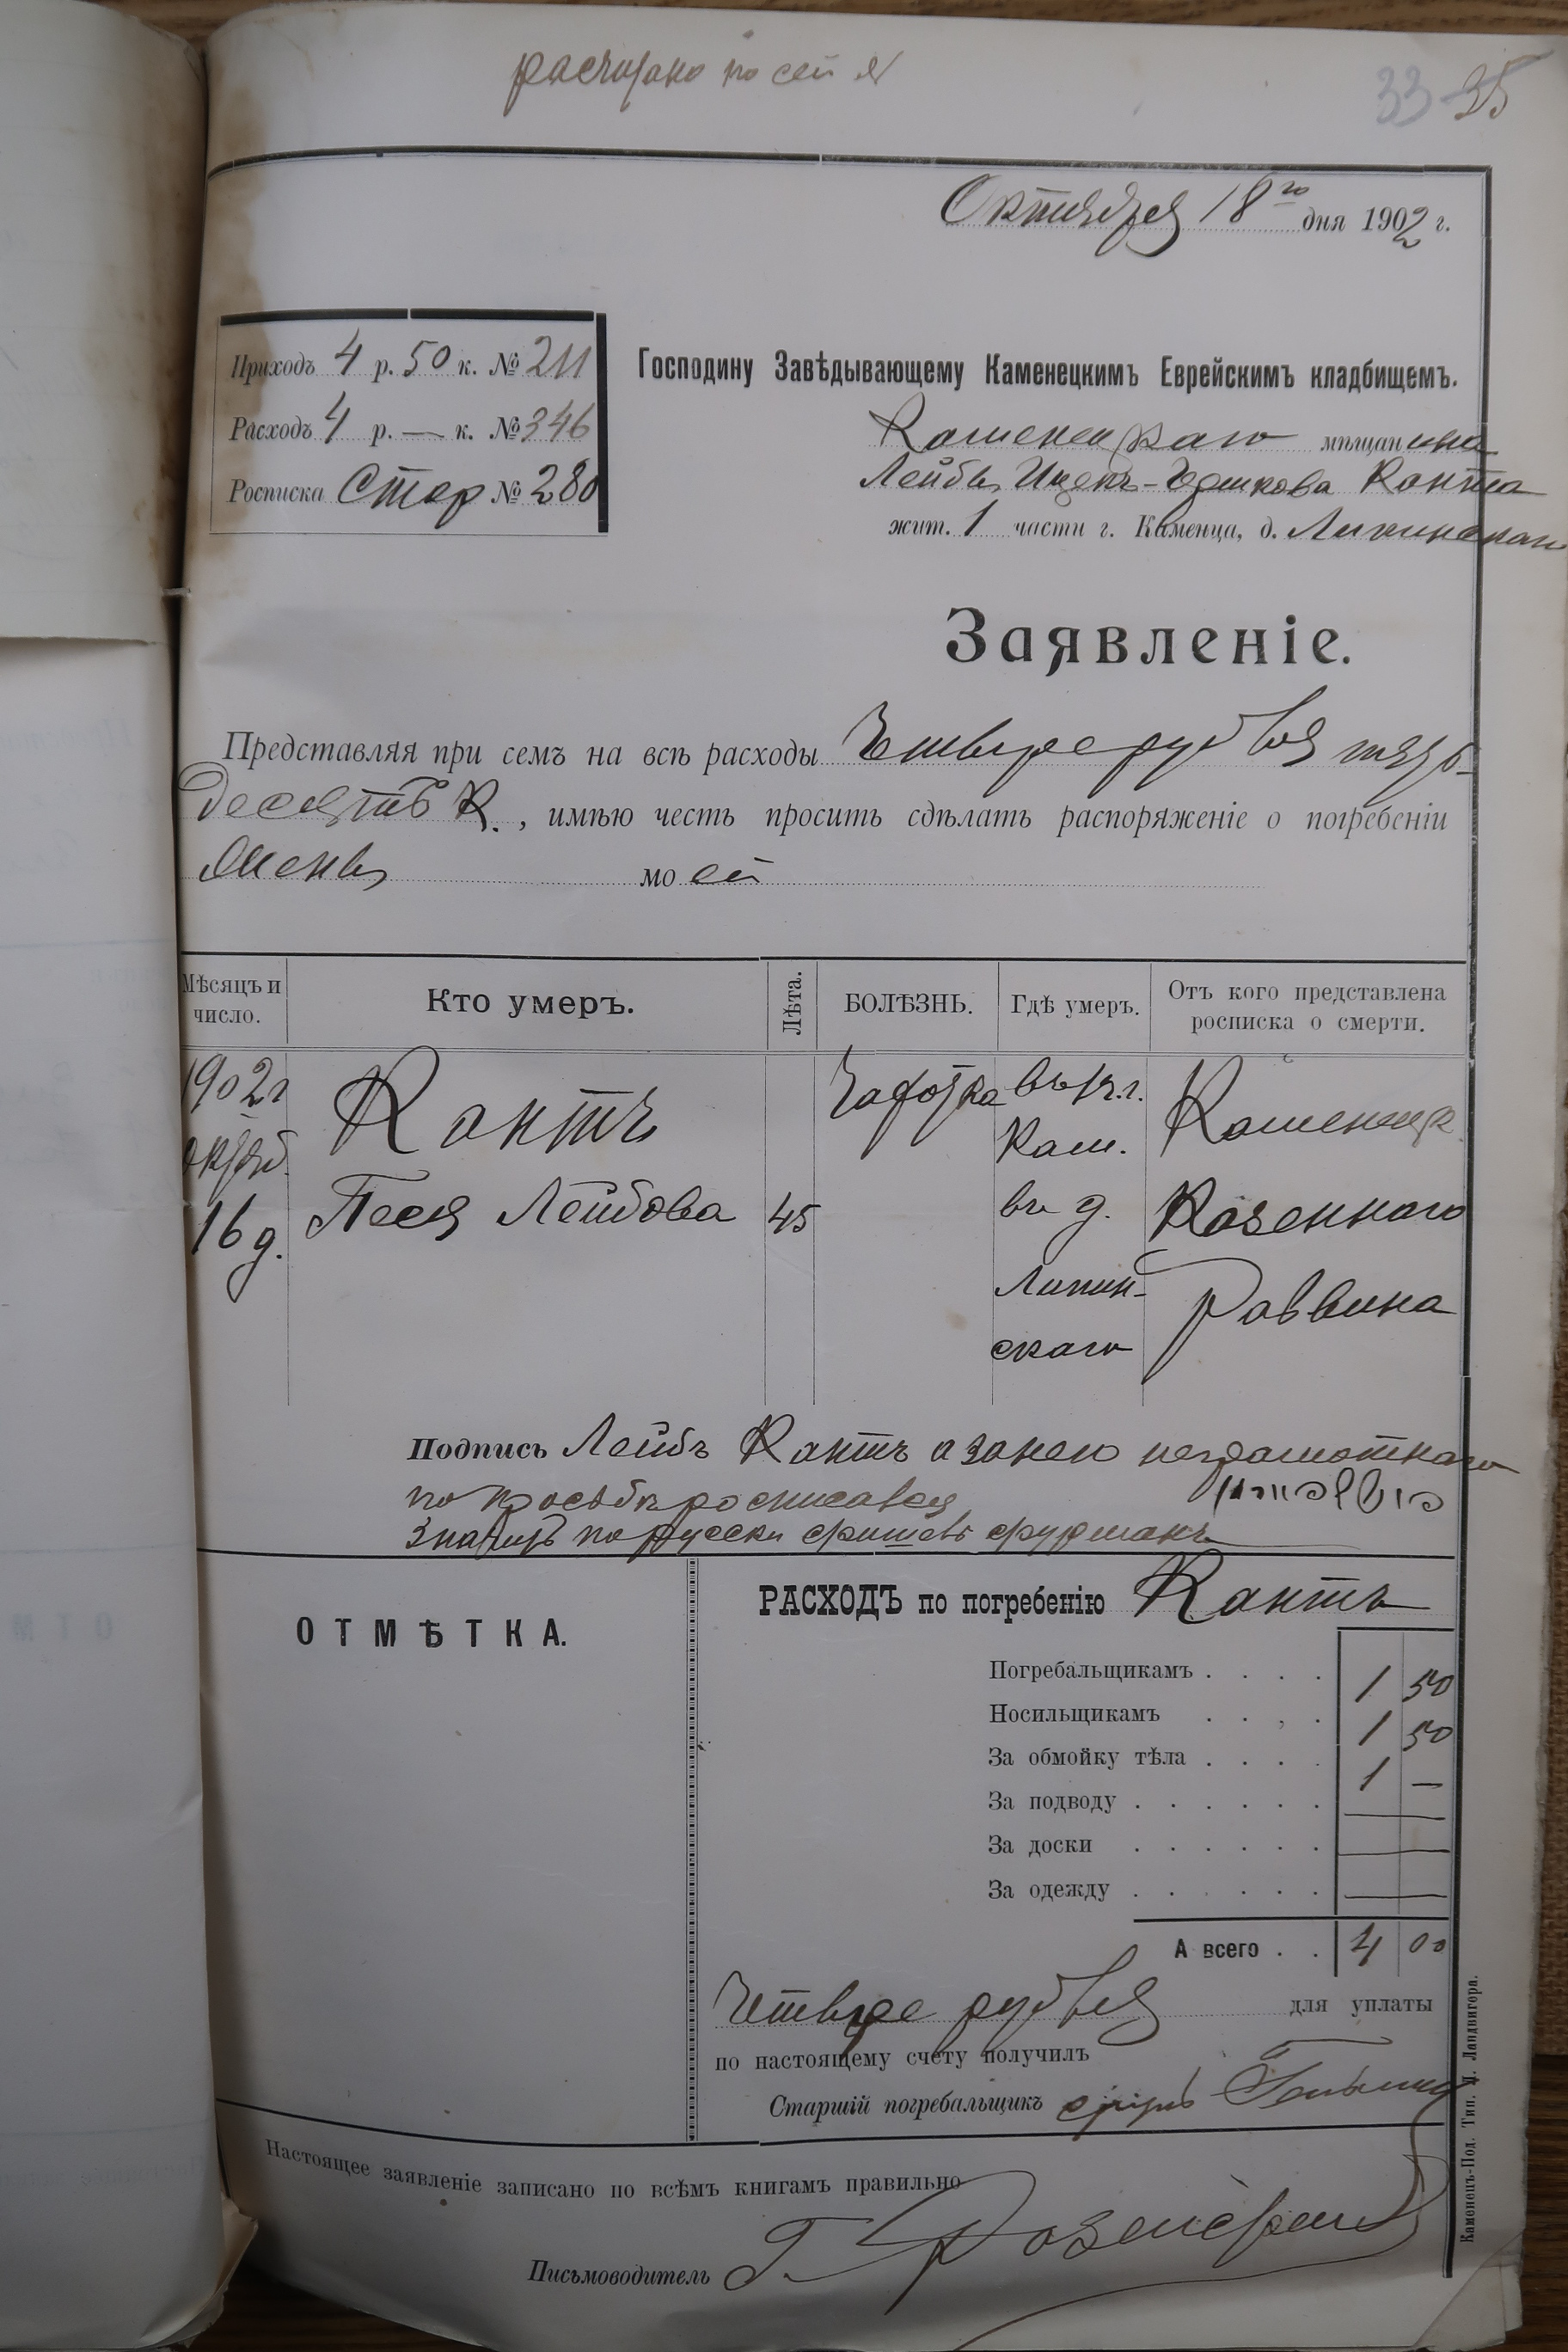 расчитано по сей №
33 35
Октября 18го дня 1902 г.
Приходъ 4 р. 50 к. № 211
Расходъ 4 р. — к. № 346
Росписка Стар № 280
Господину Завѣдывающему Каменецкимъ Еврейскимъ кладбищемъ.
Каменецкаго мѣщанина
Лейбы Ицекъ-Ершкова Канта
жит. 1 части г. Каменца, д. Липинскаго
Заявленіе.
Представляя при семъ на всѣ расходы Четыре рубля пять-
десятъ К., имѣю честь просить сдѣлать распоряженіе о погребеніи
Жены моей
Мѣсяцъ и число.
Кто умеръ.
Лѣта.
БОЛѢЗНЬ.
Гдѣ умеръ.
Отъ кого представлена росписка о смерти.
1902 г
октяб.
16 д.
Кантъ
Песя Лейбова
45
Чахотка
въ г.
Кам.
въ д.
Липин-
скаго
Каменецк.
Казеннаго
Раввина
Подпись Лейбъ Кантъ а за нею неграмотнаго
по просьбѣ росписался
знающ по русски Фишель Фурманъ
РАСХОДЪ по погребенію Кантъ
ОТМѢТКА.
Погребальщикамъ . . . . 1 50
Носильщикамъ . . , . 1 50
За обмойку тѣла . . . . 1 —
За подводу . . . . . . —
За доски . . . . . . —
За одежду . . . . . . —
А всего . . 4 00
Четыре рубля для уплаты
по настоящему счету получилъ
Старшій погребальщикъ
Настоящее заявленіе записано по всѣмъ книгамъ правильно
Письмоводитель Г.
Каменецъ-Под. Тип. Ландвигера.